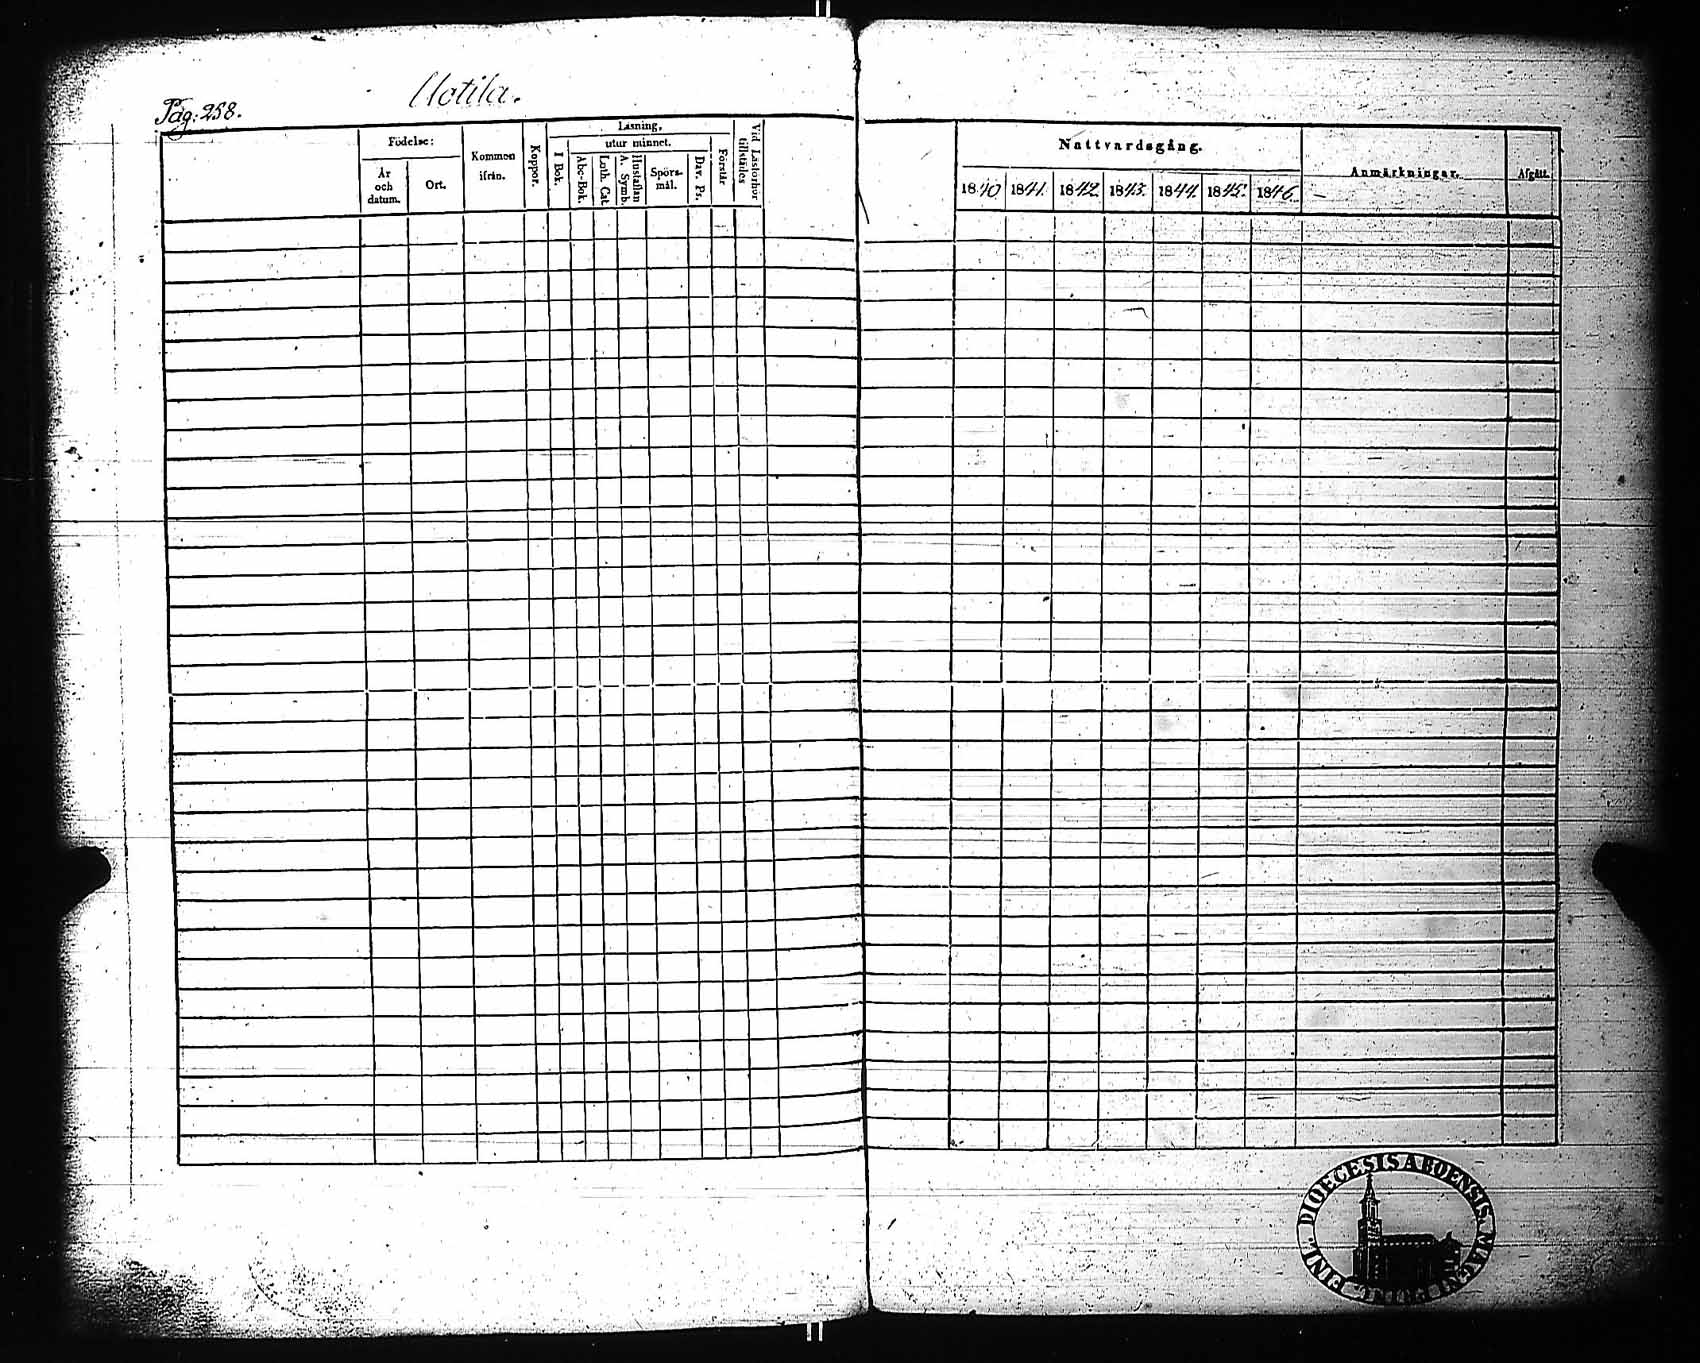 Pag. 258.
Uotila.
Födelse:
År
och
datum.
Ort.
Kommen
ifrån.
Koppor.
Läsning,
I Bok.
utur minnet.
Abc-Bok.
Luth. Cat.
Hustaflan
A. Symb.
Spörs-
mål.
Dav. Ps.
Förstår
Vid Läsförhör
tillställes
Nattvardsgång.
1840
1841.
1842.
1843.
1844.
1845.
1846.
Anmärkningar.
Afgått.
DIOECESIS ABOENSIS